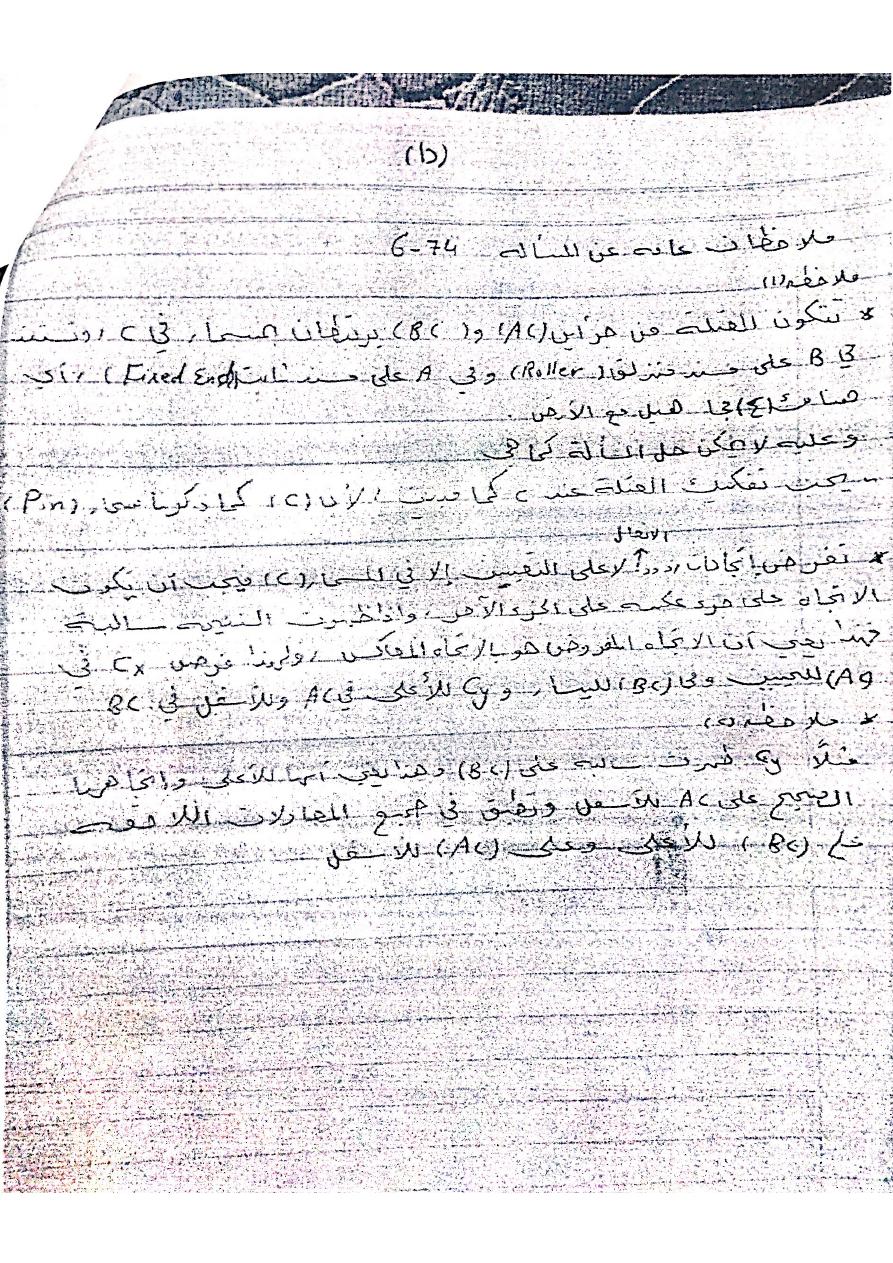 (15)
ملاحظات عامه عن المسأله 6-74
ملاحظه (1)
* تتكون العتلة من جزأين (AC) و (BC) يرتبطان بمسمار في C وتستند
في B على مسند منزلق (Roller) وفي A على مسند ثابت (Fixed End)، أي
هناك (3) مجاهيل مع الأرض.
وعليه لا يمكن حل المسألة كما هي
يجب تفكيك العتلة عند C كما لأن (C) كما مسمار (Pin)
الأفعال
* تفرض إتجاهات ردود لا على التعيين إلا في المسمار (C) فيجب أن يكون
الاتجاه على جزء عكسه على الجزء الآخر، واذا ظهرت النتيجه سالبة
فهذا يعني أن الاتجاه المفروض هو بالاتجاه المعاكس، ولهذا فرض Cx في
(AC) لليمين وفي (BC) لليسار، و Cy للأعلى في AC وللأسفل في BC
* ملاحظه (2)
مثلاً Cy ظهرت سالبه على (BC) وهذا يعني أنها للأعلى وإتجاهها
الصحيح على AC للأسفل وتطبق في جميع المعادلات اللاحقه
(BC) للأعلى وعلى (AC) للأسفل